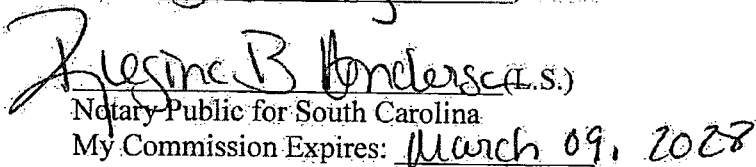 Regina B Henderson (L.S.)
Notary Public for South Carolina
My Commission Expires: March 09, 2028